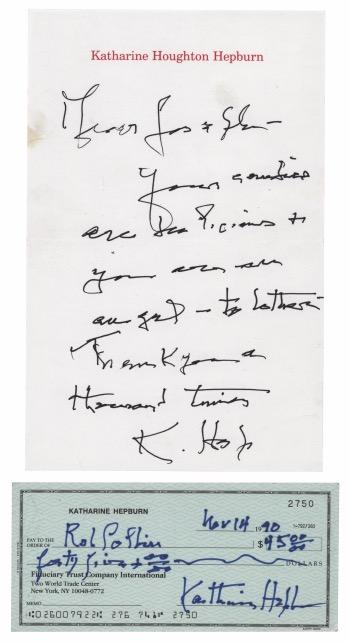 Katharine Houghton Hepburn
Dear Jos &
Your candies
are delicious &
you are an
angel — to bother
Thank you a
thousand times
K. Hep
KATHARINE HEPBURN
2750
Nov 14 1990
PAY TO THE
ORDER OF
$ 45 00
forty five + 00
DOLLARS
Fiduciary Trust Company International
Two World Trade Center
New York, NY 10048-0772
Katharine Hepburn
MEMO
2750